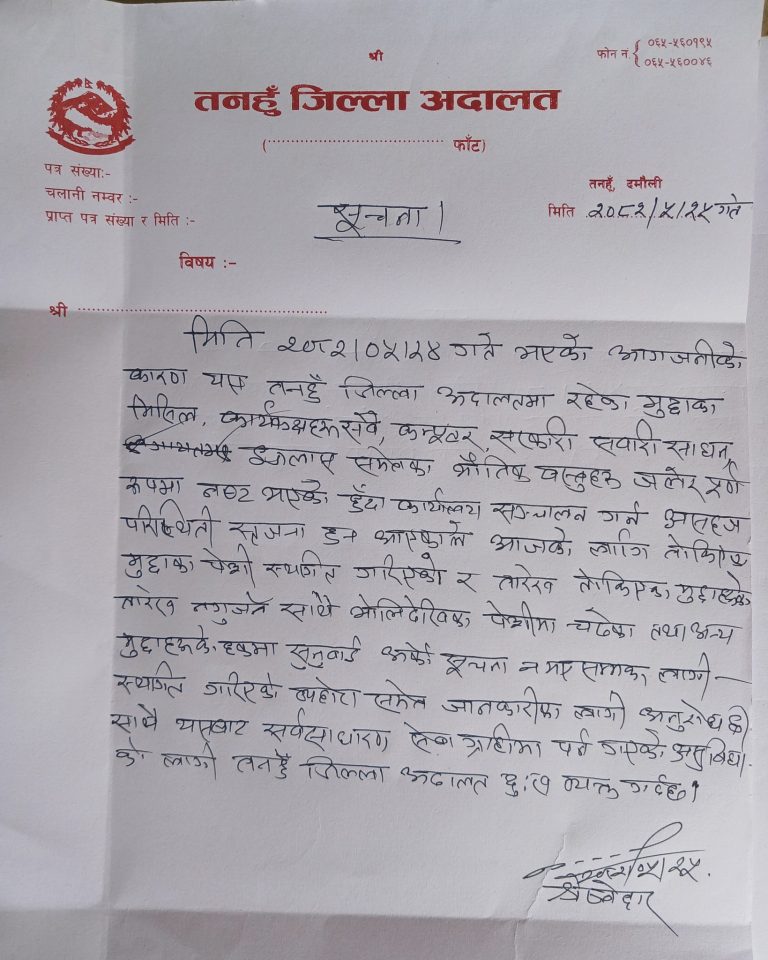 श्री
फोन नं. { ०६५-५६०१९५
०६५-५६००४६
तनहुँ जिल्ला अदालत
(........................................ फाँट)
पत्र संख्या:-
चलानी नम्बर :-
प्राप्त पत्र संख्या र मिति :-
तनहुँ, दमौली
मिति २०८२/५/२५ गते
सूचना।
विषय :-
श्री ........................................
मिति २०८२।०५।२४ गते भएको आगजनीको
कारण यस तनहुँ जिल्ला अदालतमा रहेका मुद्दाका
मिसिल, कार्यकक्षहरू सवै, कम्प्यूटर, सरकारी सवारी साधन,
इजलास समेतका भौतिक वस्तुहरू जलेर पूर्ण
रूपमा नष्ट भएको हुँदा कार्यालय सञ्चालन गर्न असहज
परिस्थिती सृजना हुन आएकोले आजको लागि तोकिएका
मुद्दाका पेशी स्थगित गरिएको र तारेख तोकिएका मुद्दाहरूको
तारेख नगुज्रने साथै भोलिदेखिका पेशीमा चढेका तथा अन्य
मुद्दाहरूको हकमा सुनुवाई अर्को सूचना नभए सम्मका लागी
स्थगित गरिएको व्यहोरा समेत जानकारीका लागी अनुरोध छ।
साथै यसबाट सर्वसाधारण सेवा ग्राहीमा पर्न गएको असुविधा
को लागी तनहुँ जिल्ला अदालत दुःख व्यक्त गर्दछ।
०५।२५
श्रेष्तेदार